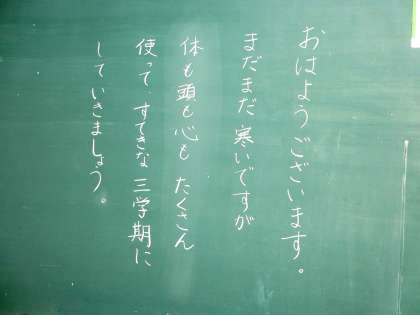 おはようございます。
まだまだ寒いですが
体も頭も心も たくさん
使って、すてきな 三学期に
していきましょう。